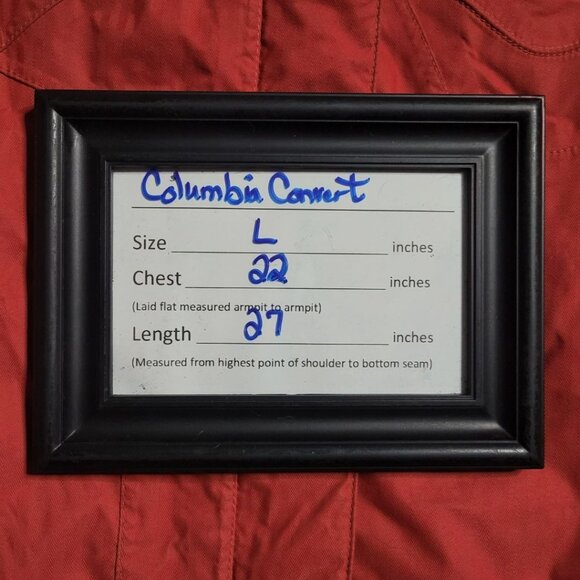 Columbia Convert
Size L inches
Chest 22 inches
(Laid flat measured armpit to armpit)
Length 27 inches
(Measured from highest point of shoulder to bottom seam)